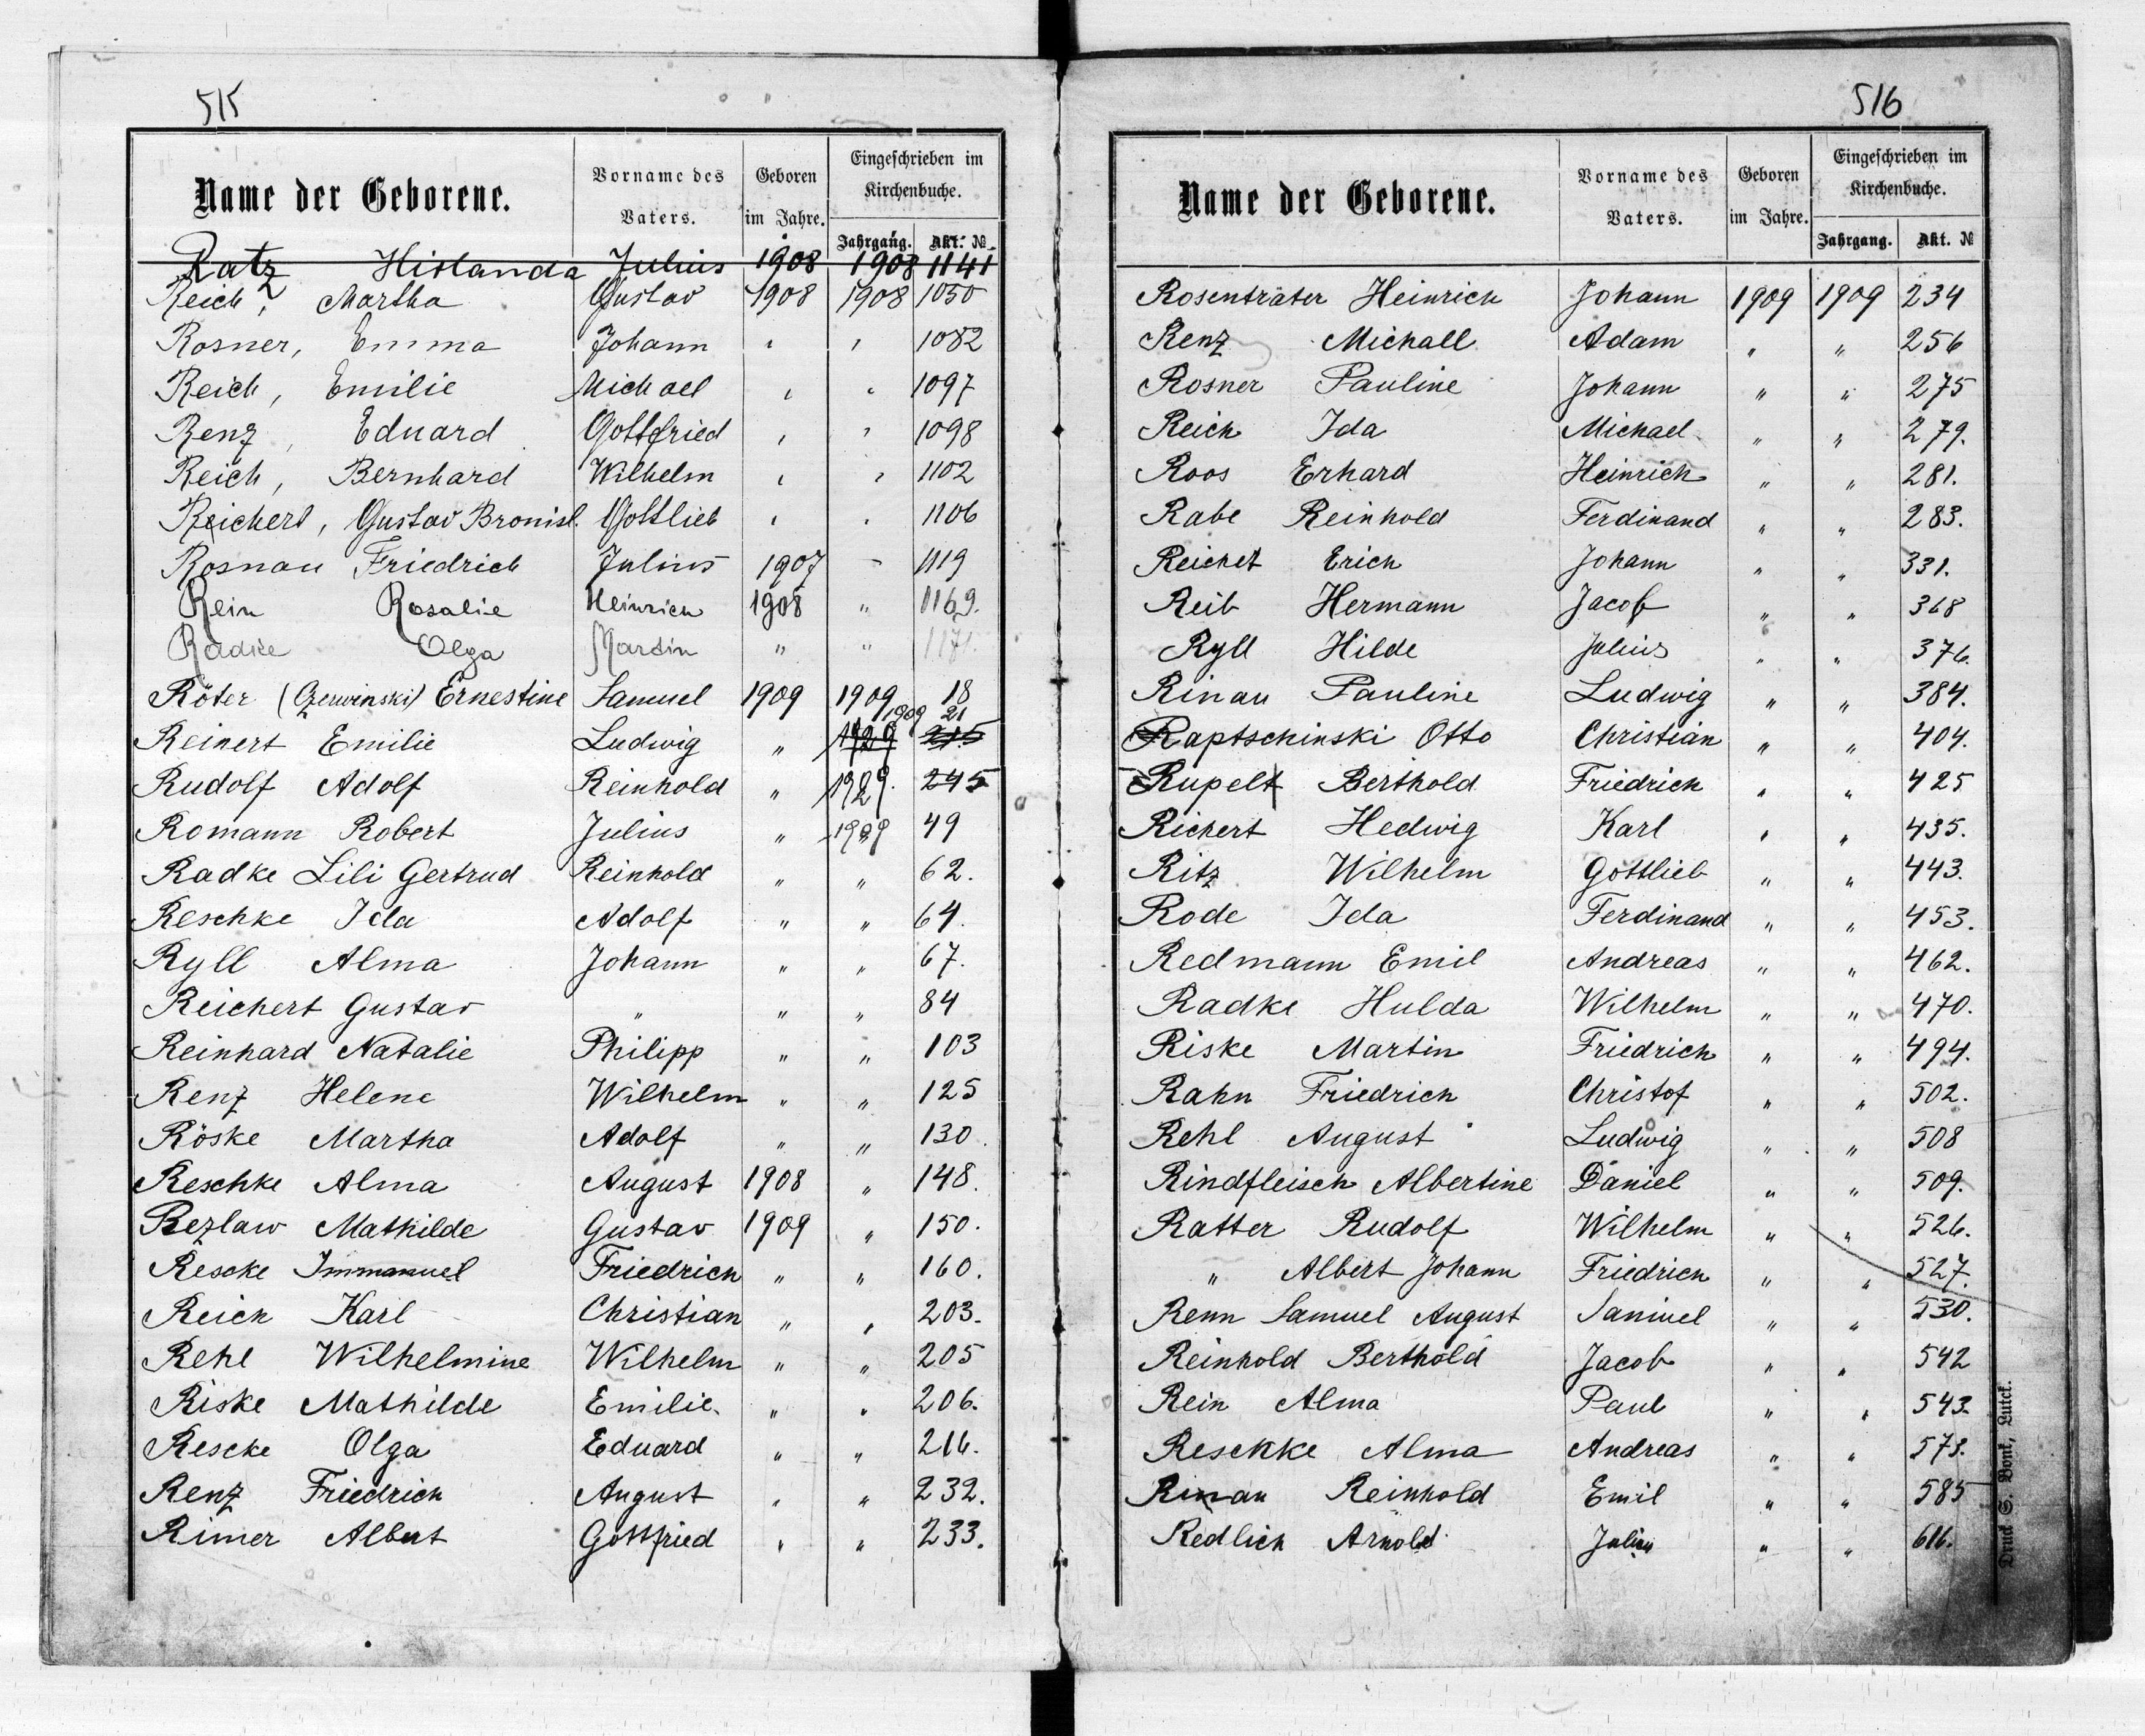 515
Name der Geborene. Vorname des Vaters. Geboren im Jahre. Eingeschrieben im Kirchenbuche. Jahrgang. Akt. №
Ratz Hislanda Julius 1908 1908 1141
Reich, Martha Gustav 1908 1908 1050
Rosner, Emma Johann " " 1082
Reich, Emilie Michael " " 1097
Renz, Eduard Gottfried " " 1098
Reich, Bernhard Wilhelm " " 1102
Reichert, Gustav Bronisl. Gottlieb " " 1106
Rosnau Friedrich Julius 1907 " 1119
Rein Rosalie Heinrich 1908 " 1169.
Radke Olga Martin " " 1171.
Röter (Czerwinski) Ernestine Samuel 1909 1909 18
Reinert Emilie Ludwig " 1929 1909 215 21
Rudolf Adolf Reinhold " 1929. 245
Romann Robert Julius " 1909 49
Radke Lili Gertrud Reinhold " " 62.
Reschke Ida Adolf " " 64.
Ryll Alma Johann " " 67.
Reichert Gustav " " " 84
Reinhard Natalie Philipp " " 103
Renz Helene Wilhelm " " 125
Röske Martha Adolf " " 130.
Reschke Alma August 1908 " 148.
Rezlaw Mathilde Gustav 1909 " 150.
Rescke Immanuel Friedrich " " 160.
Reich Karl Christian " " 203.
Rehl Wilhelmine Wilhelm " " 205
Riske Mathilde Emilie " " 206.
Rescke Olga Eduard " " 216.
Renz Friedrich August " " 232.
Rimer Albert Gottfried " " 233.
516
Name der Geborene. Vorname des Vaters. Geboren im Jahre. Eingeschrieben im Kirchenbuche. Jahrgang. Akt. №
Rosenträter Heinrich Johann 1909 1909 234
Renz Michall Adam " " 256
Rosner Pauline Johann " " 275
Reich Ida Michael " " 279.
Roos Erhard Heinrich " " 281.
Rabe Reinhold Ferdinand " " 283.
Reichet Erich Johann " " 331.
Reib Hermann Jacob " " 368
Ryll Hilde Julius " " 376.
Rinau Pauline Ludwig " " 384.
Raptschinski Otto Christian " " 404.
Rupelt Berthold Friedrich " " 425
Richert Hedwig Karl " " 435.
Ritz Wilhelm Gottlieb " " 443.
Rode Ida Ferdinand " " 453.
Redmann Emil Andreas " " 462.
Radke Hulda Wilhelm " " 470.
Riske Martin Friedrich " " 494.
Rahn Friedrich Christof " " 502.
Rehl August Ludwig " " 508
Rindfleisch Albertine Daniel " " 509.
Ratter Rudolf Wilhelm " " 526.
" Albert Johann Friedrich " " 527.
Renn Samuel August Samuel " " 530.
Reinhold Berthold Jacob " " 542
Rein Alma Paul " " 543.
Reschke Alma Andreas " " 578.
Rinau Reinhold Emil " " 585
Redlich Arnold Julius " " 616.
Druck S. Bonk, Lutck.